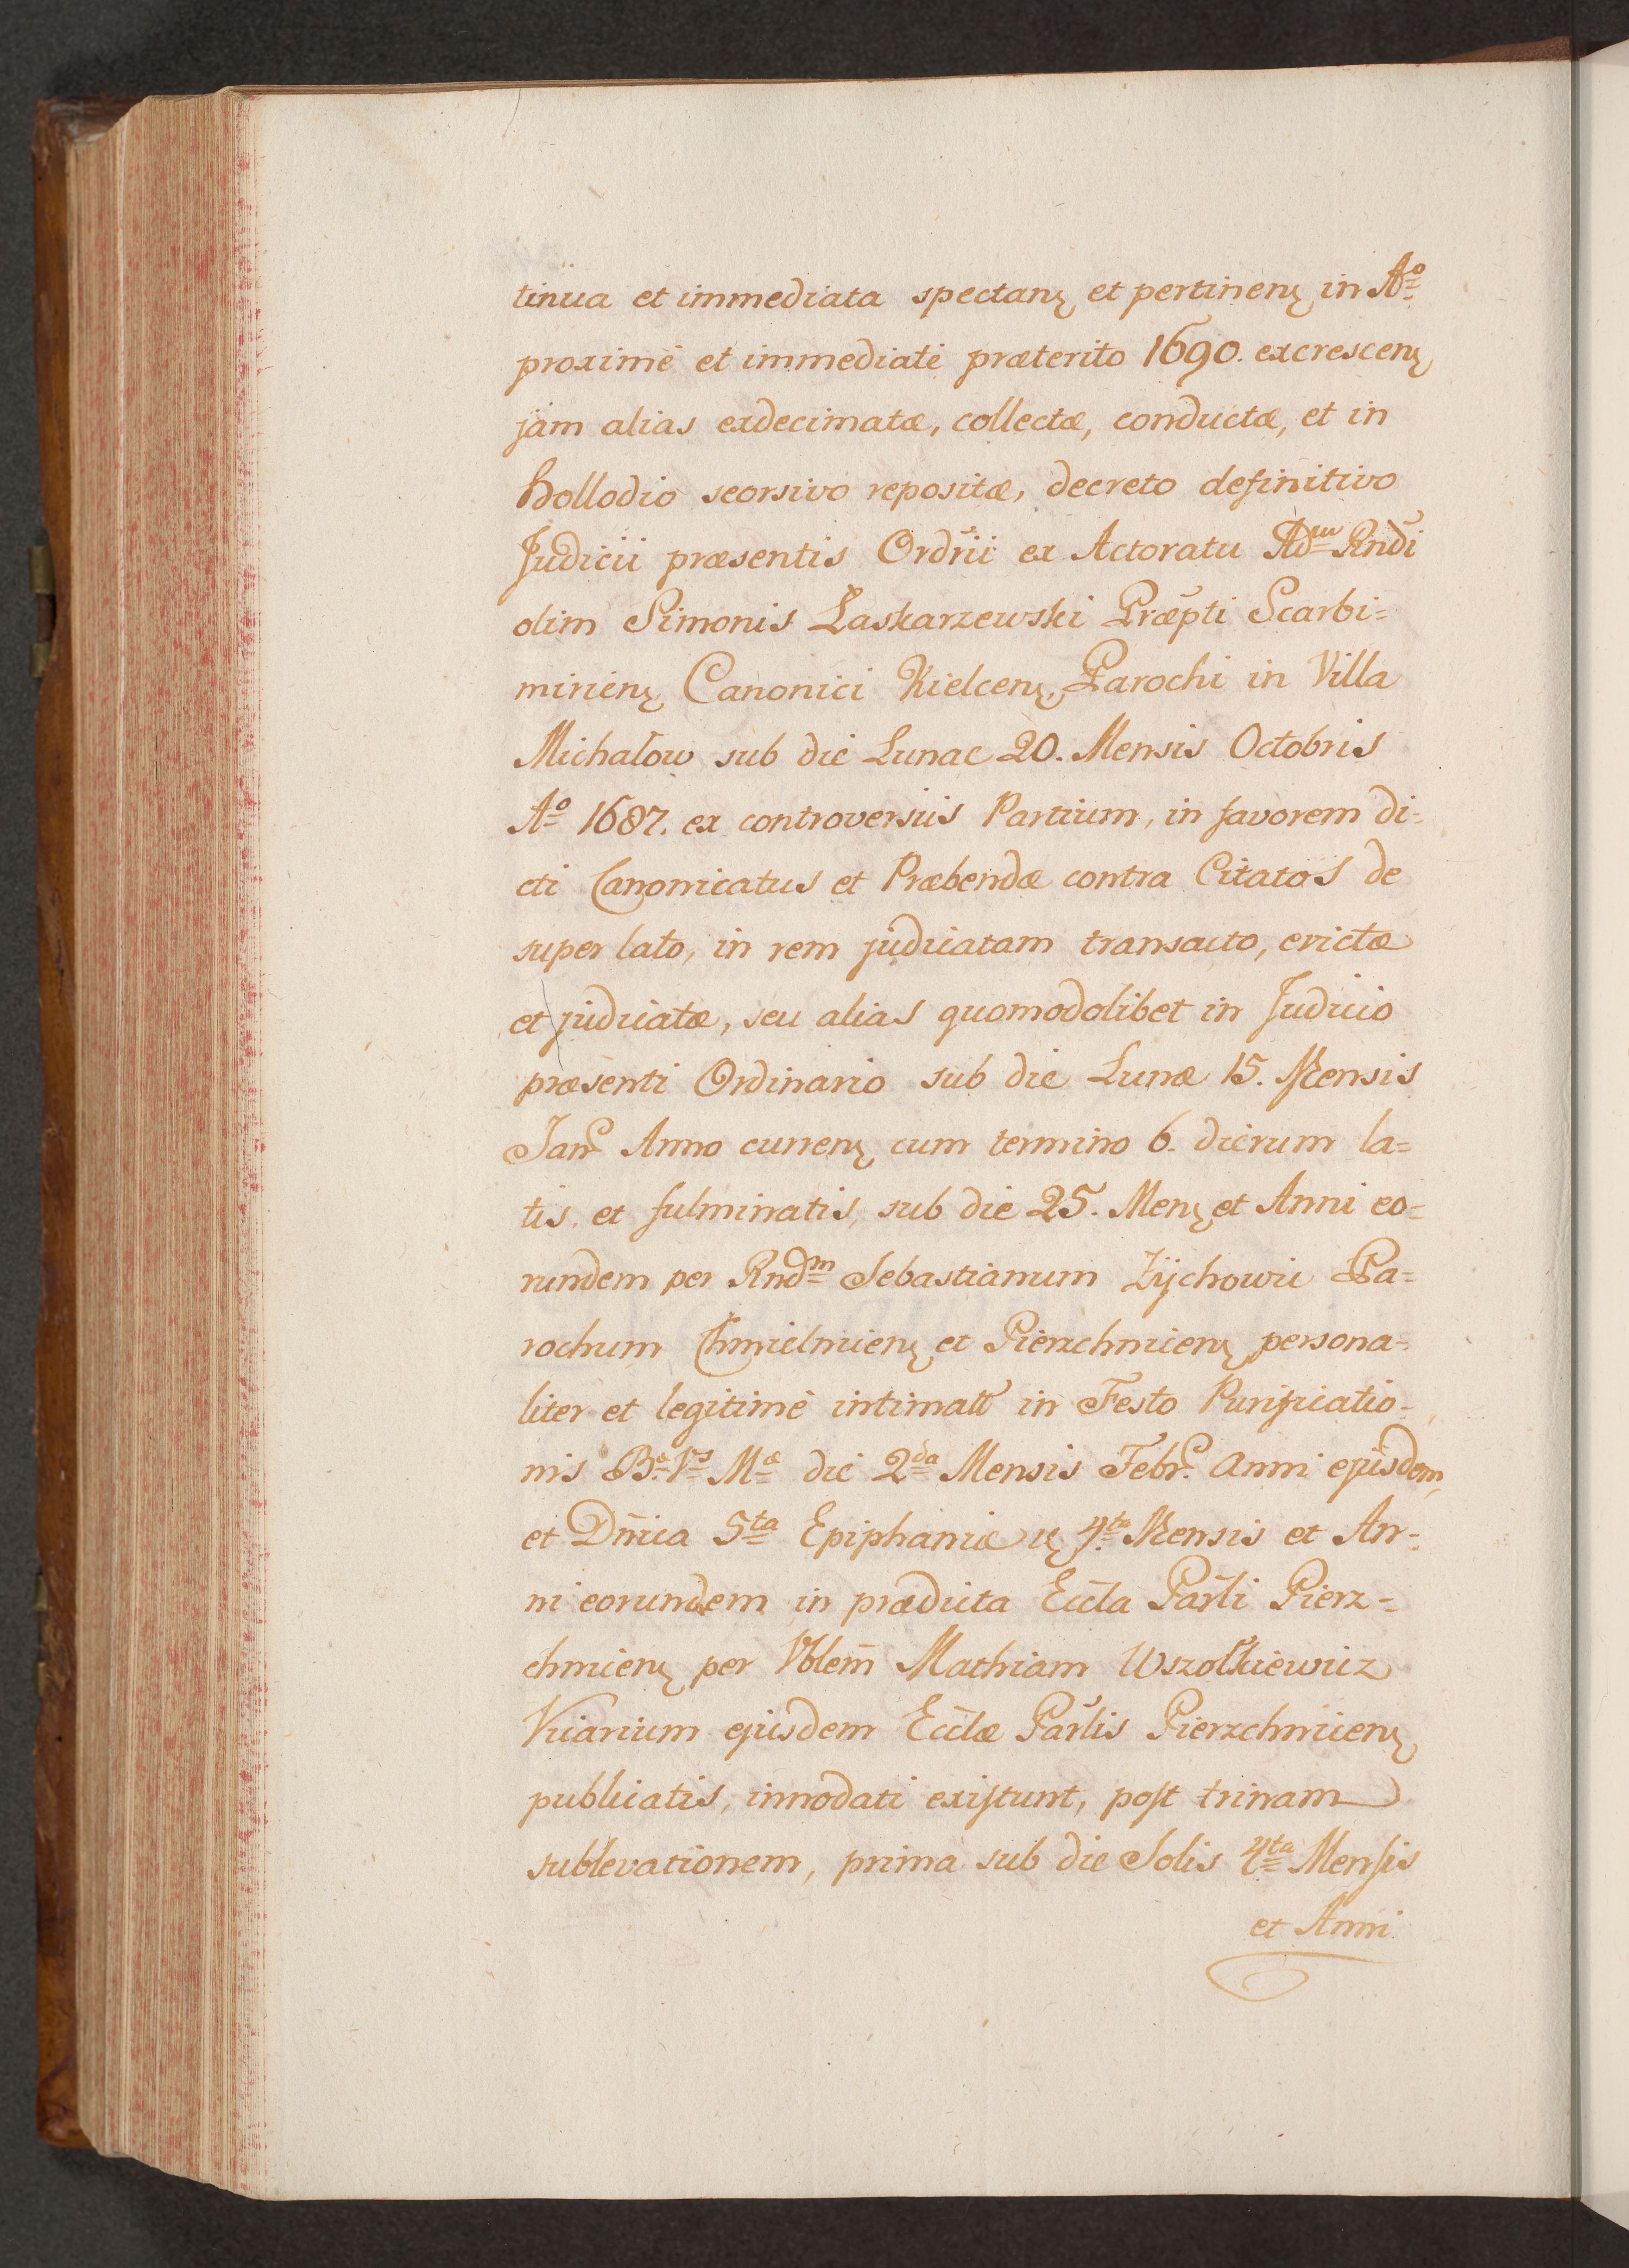 tinua et immediata spectanꝫ et pertinenꝫ in Aº
proximè et immediatè præterito 1690. excrescenꝫ
jam alias exdecimatæ, collectæ, conductæ, et in
Hollodio seorsivo repositæ, decreto definitivo
Judicii præsentis Ordrii ex Actoratu Adm Rndi
olim Simonis Łaskarzewski Præpti Scarbi=
mirienꝫ Canonici Kielcenꝫ, Parochi in Villa
Michałow sub die Lunae 20. Mensis Octobris
Aº 1687. ex controversiis Partium, in favorem di=
cti Canonicatus et Præbendæ contra Citatos de
super lato, in rem judicatam transacto, evictæ
et judicatæ, seu alias quomodolibet in Judicio
præsenti Ordinario sub die Lunæ 15. Mensis
Janr Anno currenꝫ cum termino 6. dierum la=
tis. et fulminatis, sub die 25. Menꝫ et Anni eo=
rundem per Rndm Sebastianum Zÿchowic Pa=
rochum Chmielnicenꝫ et Pierzchnicenꝫ persona=
liter et legitimè intimatt in Festo Purificatio=
nis Bæ Vs Mæ die 2da Mensis Febr. Anni ejusdem,
et Dnica 5ta Epiphaniæ 4ta Mensis et An=
ni eorundem in prædicta Eccla Parli Pierz=
chnicenꝫ per Vblem Mathiam Wszołkiewicz
Vicarium ejusdem Ecclæ Parlis Pierzchnicenꝫ
publicatis, innodati existunt, post trinam
sublevationem, prima sub die Solis 4ta Mensis
et Anni